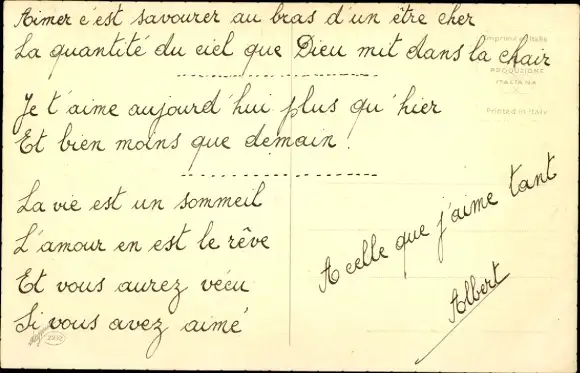 Aimer c'est savourer au bras d'un être cher
La quantité du ciel que Dieu mit dans la chair
Je t'aime aujourd'hui plus qu'hier
Et bien moins que demain !
La vie est un sommeil
L'amour en est le rêve
Et vous aurez vécu
Si vous avez aimé
A celle que j'aime tant
Albert
Imprimé en Italie
PRODUZIONE
ITALIANA
Printed in Italy